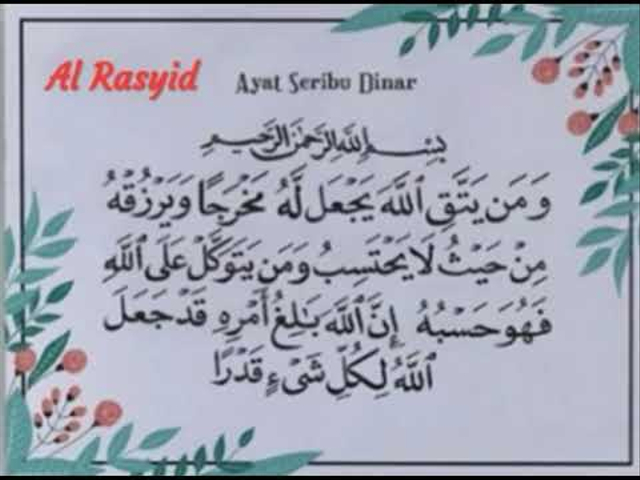 Al Rasyid
Ayat Seribu Dinar
بِسْمِ اللَّهِ الرَّحْمَٰنِ الرَّحِيمِ
وَمَن يَتَّقِ ٱللَّهَ يَجْعَل لَّهُۥ مَخْرَجًا وَيَرْزُقْهُ
مِنْ حَيْثُ لَا يَحْتَسِبُ وَمَن يَتَوَكَّلْ عَلَى ٱللَّهِ
فَهُوَ حَسْبُهُۥٓ إِنَّ ٱللَّهَ بَٰلِغُ أَمْرِهِۦ قَدْ جَعَلَ
ٱللَّهُ لِكُلِّ شَىْءٍ قَدْرًا